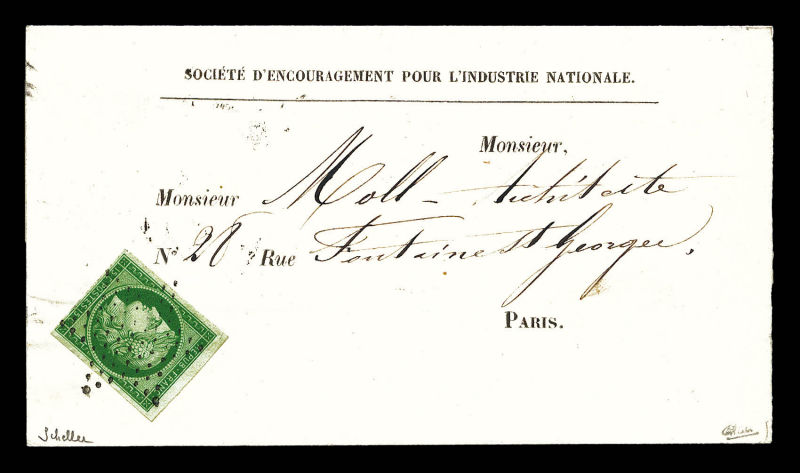 SOCIÉTÉ D'ENCOURAGEMENT POUR L'INDUSTRIE NATIONALE.
Monsieur,
Monsieur Moll - Architecte
N° 28 Rue Fontaine St Georges.
PARIS.
15 POSTES 15
REPUB FRANC
Scheller